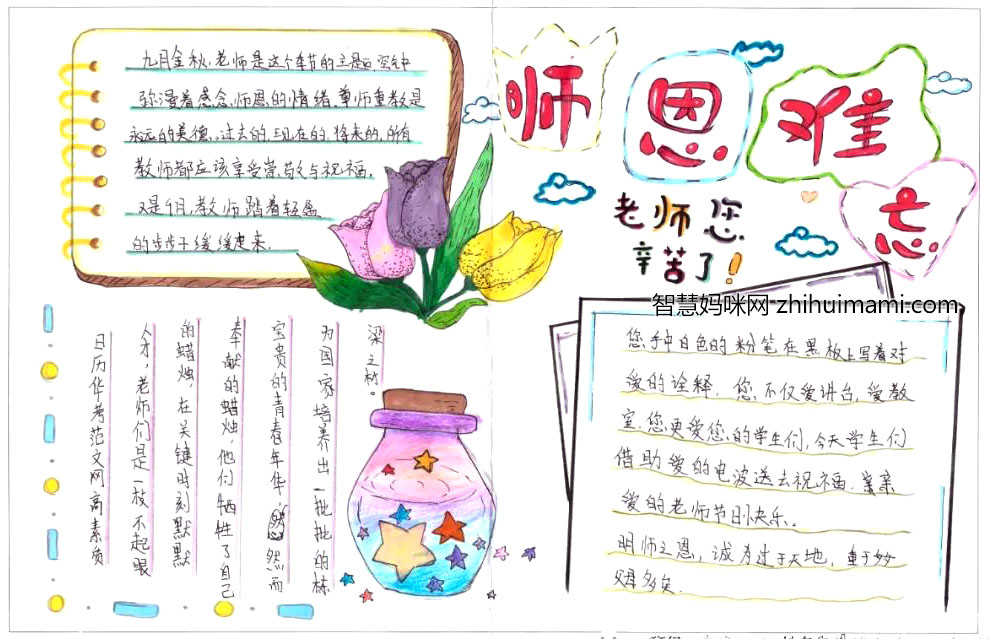 师恩难忘
老师您
辛苦了!
九月金秋,老师是这个季节的主题,空
弥漫着感念,师恩的情绪,尊师重教是
永远的美德。过去的、现在的、将来的,所有
教师都应该享受崇敬与祝福。
又是9月,教师踏着轻盈
的步子缓缓走来.
日历华考范文网高素质
人才,老师们是一枝不起眼
的蜡烛,在关键时刻默默
奉献的蜡烛,他们牺牲了自己
宝贵的青春年华 然而
为国家培养出一批批的栋
梁之材。
智慧妈咪网 zhihuimami.com
您手中白色的粉笔在黑板上写着对
爱的诠释,您不仅爱讲台,爱教
室.您更爱您的学生们,今天学生们
借助爱的电波送去祝福.亲亲
爱的老师节日快乐.
明师之恩,诚为过于天地,重于
多矣.